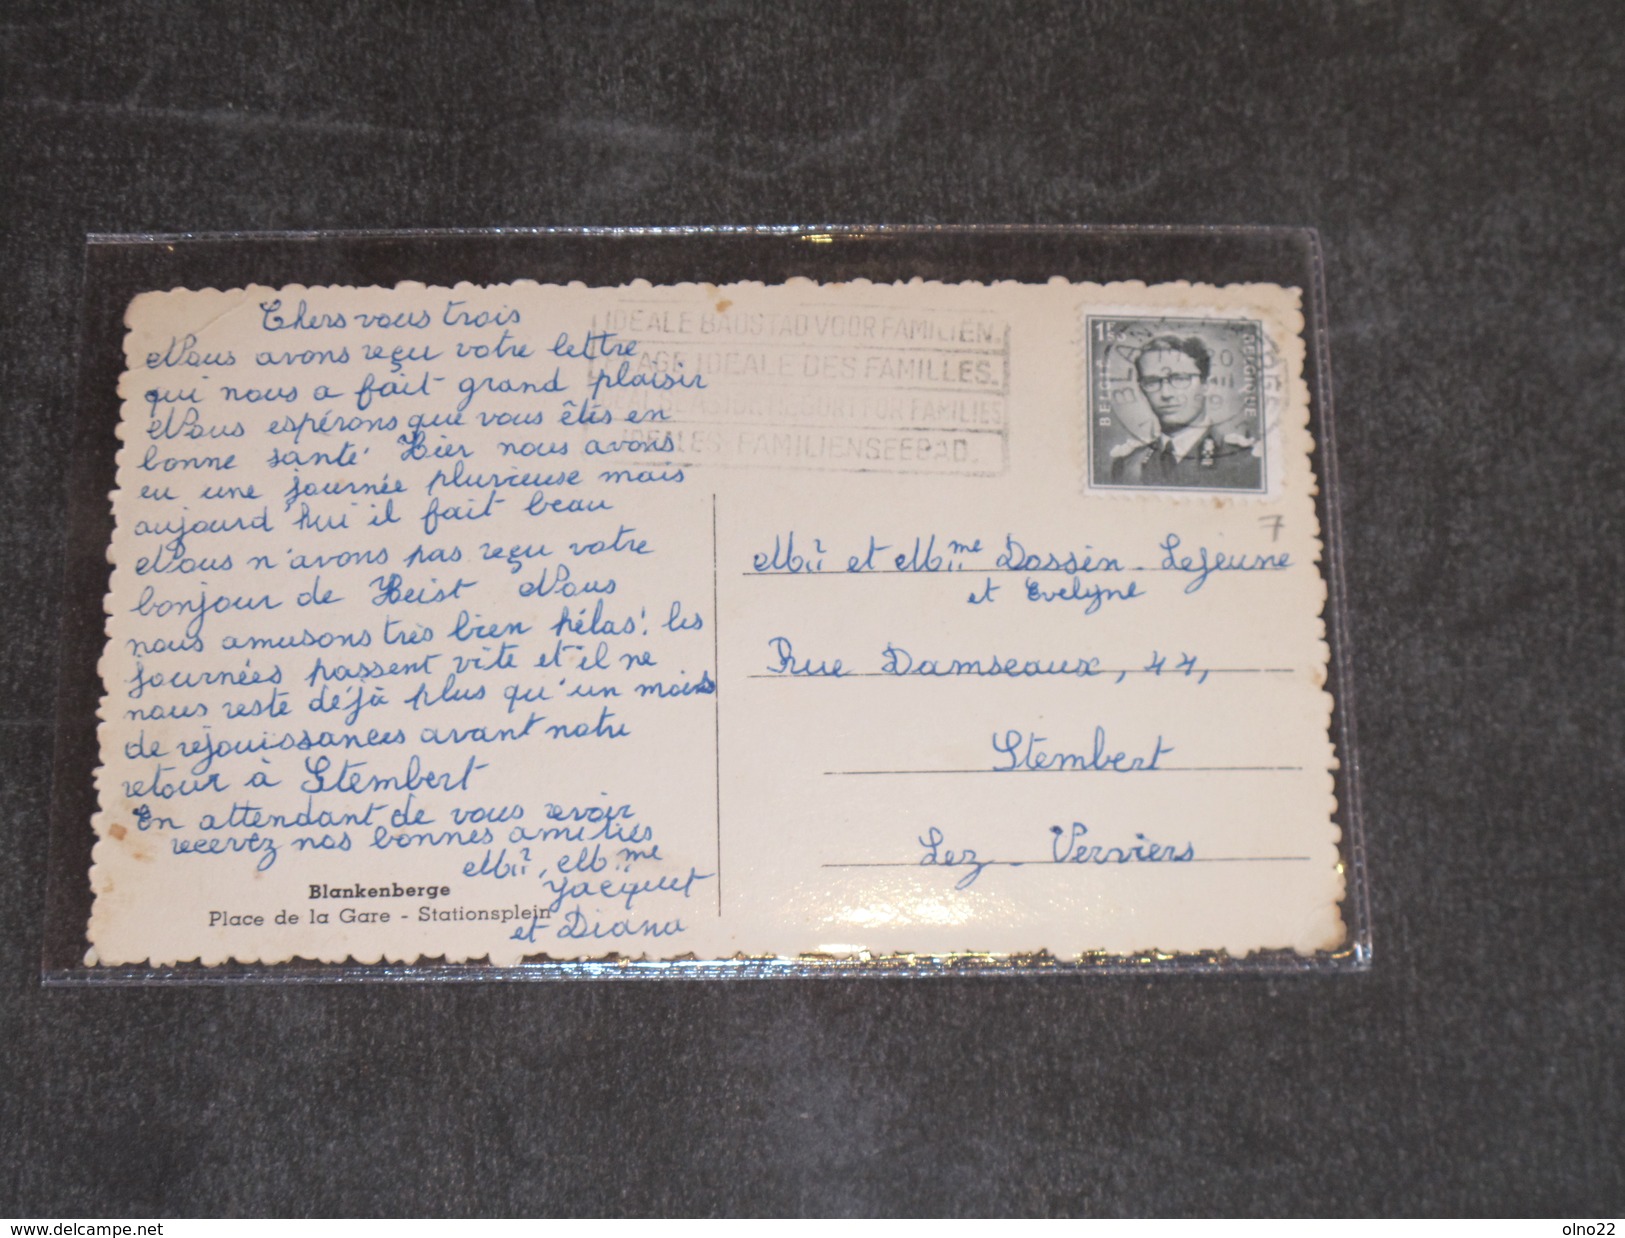 Chers vous trois
Nous avons reçu votre lettre
qui nous a fait grand plaisir
Nous espérons que vous êtes en
bonne santé Hier nous avons
eu une journée pluvieuse mais
aujourd'hui il fait beau
Nous n'avons pas reçu votre
bonjour de Heist Nous
nous amusons très bien hélas! les
journées passent vite et il ne
nous reste déjà plus qu'un mois
de rejouissances avant notre
retour à Stembert
En attendant de vous revoir
recevez nos bonnes amitiés
Mr, Mme
Jacquet
et Diana
Blankenberge
Place de la Gare - Stationsplein
IDEALE BADSTAD VOOR FAMILIEN.
PLAGE IDEALE DES FAMILLES.
IDEAL SEASIDE RESORT FOR FAMILIES
IDEALES FAMILIENSEEBAD.
BELGIE
BELGIQUE
7
Mr et Mme Dossin-Lejeune
et Evelyne
Rue Damseaux, 44,
Stembert
Lez-Verviers
www.delcampe.net
olno22